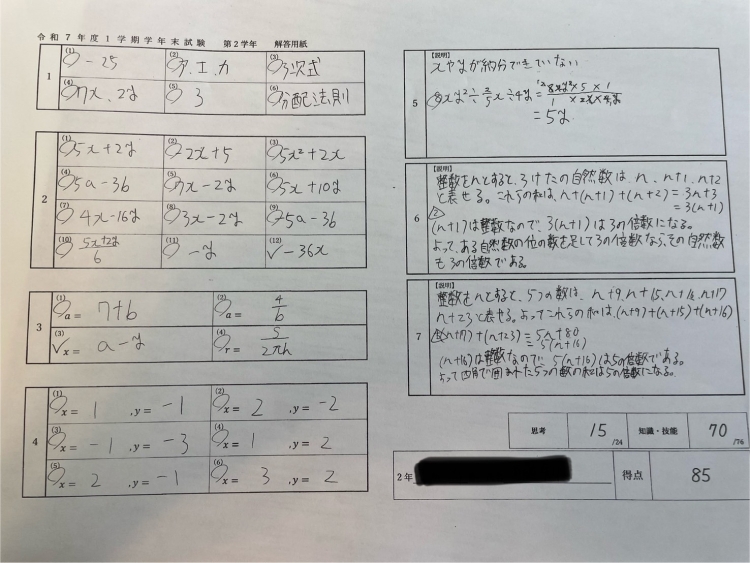 令和７年度１学期学年末試験 第２学年 解答用紙
1
(1) -25 (2) ア.エ.カ (3) 3次式
(4) 7x、2y (5) 3 (6) 分配法則
2
(1) 5x+2y (2) 2x+5 (3) 5x²+2x
(4) 5a-3b (5) 7x-2y (6) 5x+10y
(7) 4x-16y (8) 3x-2y (9) 5a-3b
(10) 5x+2y/6 (11) -y (12) -36x
3
(1) a= 7+b (2) a= 4/b
(3) x= a-y (4) r= S/2πh
4
(1) x= 1 ,y= -1 (2) x= 2 ,y= -2
(3) x= -1 ,y= -3 (4) x= 1 ,y= 2
(5) x= 2 ,y= -1 (6) x= 3 ,y= 2
5
【説明】
xやyが約分できていない
8xy²÷2/5x÷4y=8xy²×5×1/1×2x×4y
=5y
6
【説明】
整数をnとすると、3けたの自然数は、n、n+1、n+2
と表せる。これらの和は、n+(n+1)+(n+2)=3n+3
=3(n+1)
(n+1)は整数なので、3(n+1)は3の倍数になる。
よって、ある自然数の位の数を足して3の倍数なら、その自然数
も3の倍数である。
7
【説明】
整数をnとすると、5つの数は、n+9、n+15、n+16、n+17
n+23と表せる。よってこれらの和は、(n+9)+(n+15)+(n+16)
+(n+17)+(n+23)=5n+80
=5(n+16)
(n+16)は整数なので、5(n+16)は5の倍数である。
よって四角で囲まれた5つの数の和は5の倍数になる。
思考 15/24 知識・技能 70/76
2年 得点 85